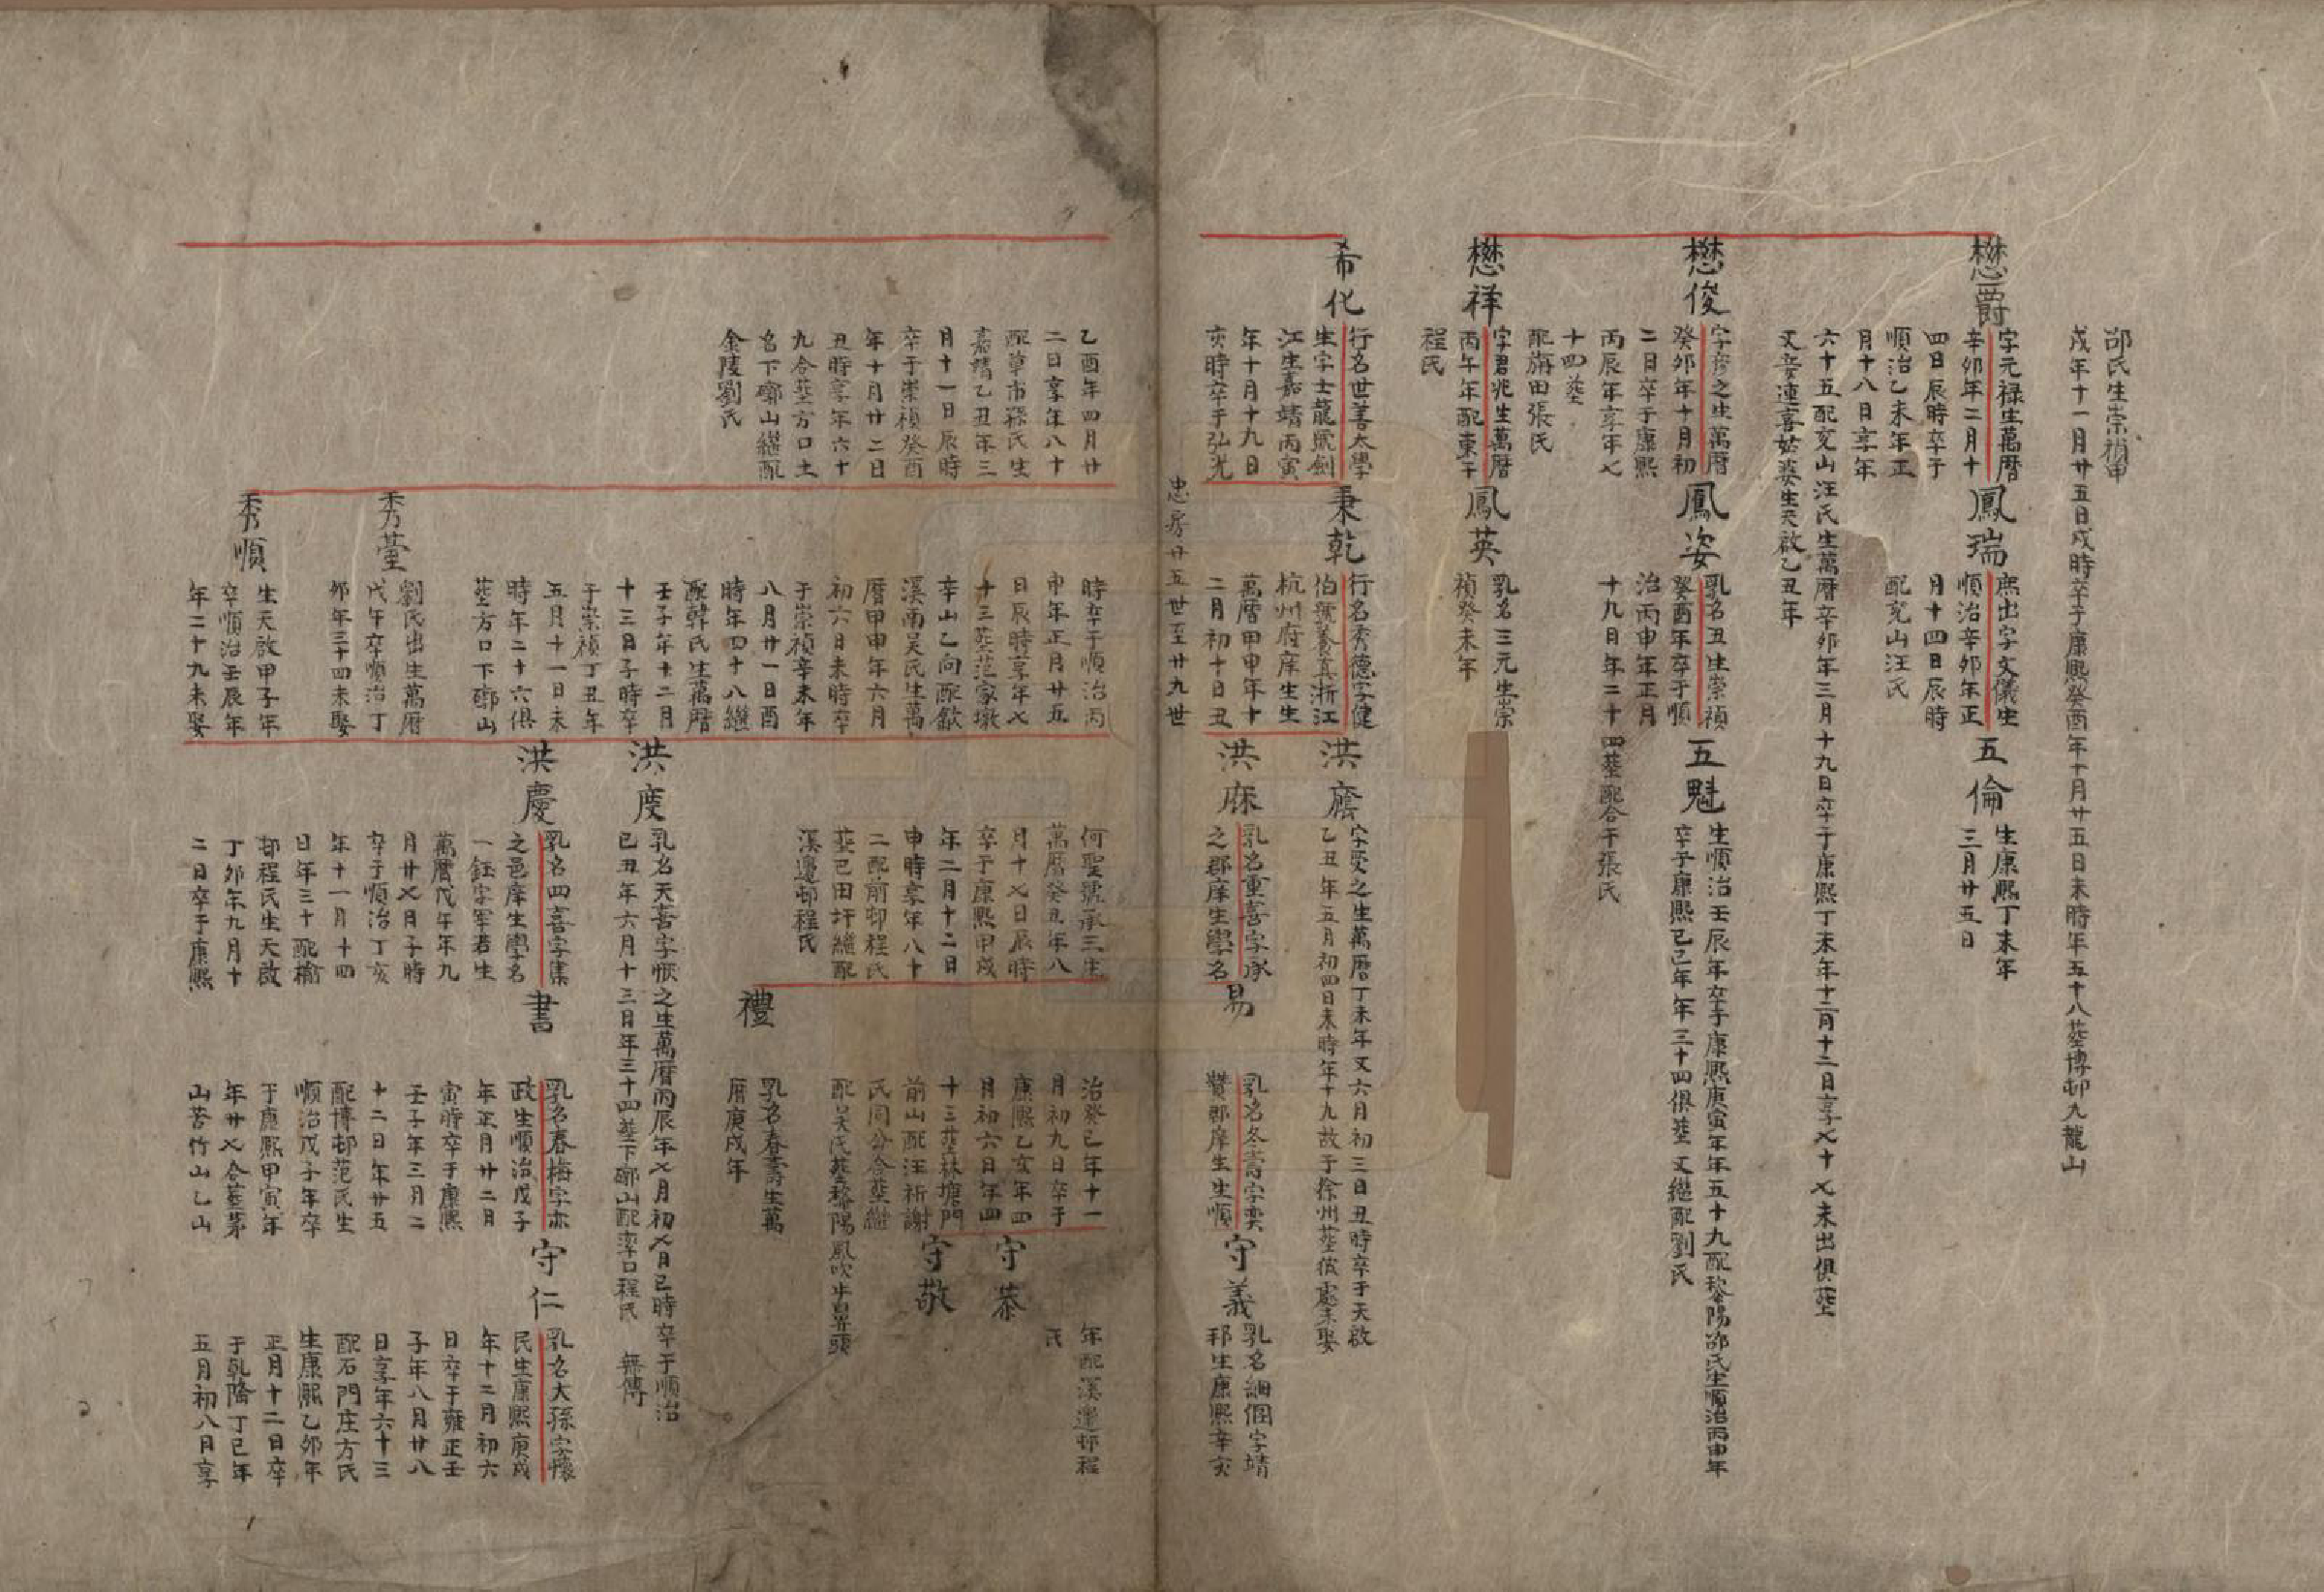 邵氏生崇禎甲
戌年十一月廿五日戌時卒于康熙癸酉年十月廿五日未時年五十八塟博邨九龍山
懋爵
字元祿生萬曆
辛卯年二月十
四日辰時卒于
順治乙未年正
月十八日享年
六十五配兗山汪氏生萬曆辛卯年三月十九日卒于康熙丁未年十二月十二日享年七十七未出俱塟
又妾連喜姑婆生天啟乙丑年
鳳瑞
庶出字文儀生
順治辛卯年正
月十四日辰時
配兗山汪氏
五倫
生康熙丁未年
三月廿五日
懋俊
字彥之生萬曆
癸卯年十月初
二日卒于康熙
丙辰年享年七
十四塟
配旃田張氏
鳳姿
乳名丑生崇禎
癸酉年卒于順
治丙申年正月
十九日年二十四塟配合干張氏
五魁
生順治壬辰年卒于康熙庚寅年年五十九配黎陽邵氏生順治丙申年
卒于康熙己巳年年三十四俱塟又繼配劉氏
懋祥
字君兆生萬曆
丙午年配東干
程氏
鳳英
乳名三元生崇
禎癸未年
希化
行名世善太學
生字士龍號劍
江生嘉靖丙寅
年十月十九日
亥時卒于弘光
秉乾
行名秀德字健
伯號養真浙江
杭州府庠生生
萬曆甲申年十
二月初十日丑
洪廕
字受之生萬曆丁未年又六月初三日丑時卒于天啟
乙丑年五月初四日未時年十九故于徐州塟彼處未娶
洪庥
乳名重喜字承
之郡庠生學名
易
乳名冬壽字奕
贊郡庠生生順
守義
乳名細個字靖
邦生康熙辛亥
忠房廿五世至廿九世
乙酉年四月廿
二日享年八十
配草市孫氏生
嘉靖乙丑年三
月十一日辰時
卒于崇禎癸酉
年十月廿二日
丑時享年六十
九合塟方口土
名下鄉山繼配
金陵劉氏
時卒于順治丙
申年正月廿五
日辰時享年七
十三塟范家墩
辛山乙向配歙
溪南吳氏生萬
曆甲申年六月
初六日未時卒
于崇禎辛未年
八月廿一日酉
時年四十八繼
配韓氏生萬曆
壬子年十二月
十三日子時卒
于崇禎丁丑年
五月十一日未
時年二十六俱
塟方口下鄉山
秀臺
劉氏出生萬曆
戊午卒順治丁
卯年三十四未娶
秀順
生天啟甲子年
卒順治壬辰年
年二十九未娶
何聖號承三生
萬曆癸丑年八
月十七日辰時
卒于康熙甲戌
年二月十二日
申時享年八十
二配前邨程氏
塟己田圩繼配
溪邊邨程氏
治癸巳年十一
月初九日卒于
康熙乙亥年四
月初六日年四
十三塟林塘門
前山配汪祈謝
氏同公合塟繼
配吳氏塟黎陽鳳吹牛鼻頭
守恭
年配溪邊邨程
氏
守敬
禮
乳名春壽生萬
曆庚戌年
洪度
乳名天喜字恢之生萬曆丙辰年七月初七日巳時卒于順治
己丑年六月十三日年三十四塟下鄉山配率口程氏 無傳
洪慶
乳名四喜字集
之邑庠生學名
一鈺字軍若生
萬曆戊午年九
月廿七日子時
卒于順治丁亥
年十一月十四
日年三十配榆
邨程氏生天啟
丁卯年九月十
二日卒于康熙
書
乳名春梅字亦
政生順治戊子
年正月廿二日
寅時卒于康熙
壬子年三月二
十二日年廿五
配博邨范氏生
順治戊子年卒
于康熙甲寅年
年廿七合塟茅
山苦竹山乙山
守仁
乳名大孫字懷
民生康熙庚戌
年十二月初六
日卒于雍正壬
子年八月廿八
日享年六十三
配石門庄方氏
生康熙乙卯年
正月十二日卒
于乾隆丁巳年
五月初八日享